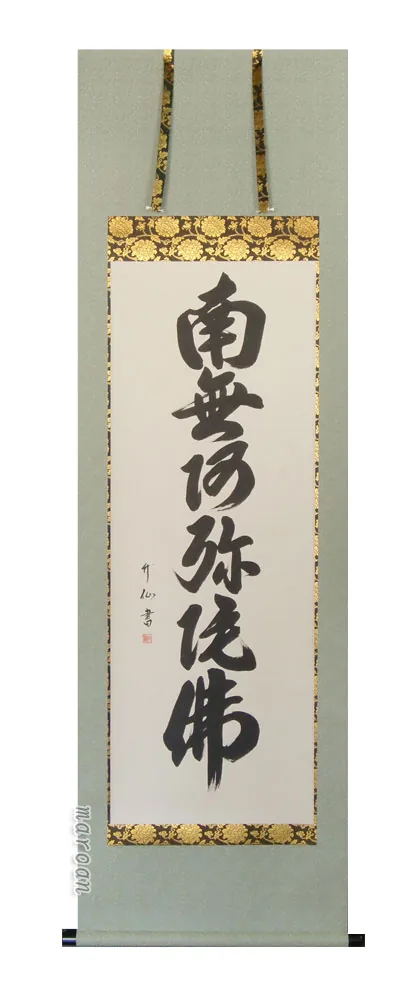 南無阿弥陀佛
竹仙書
maroan